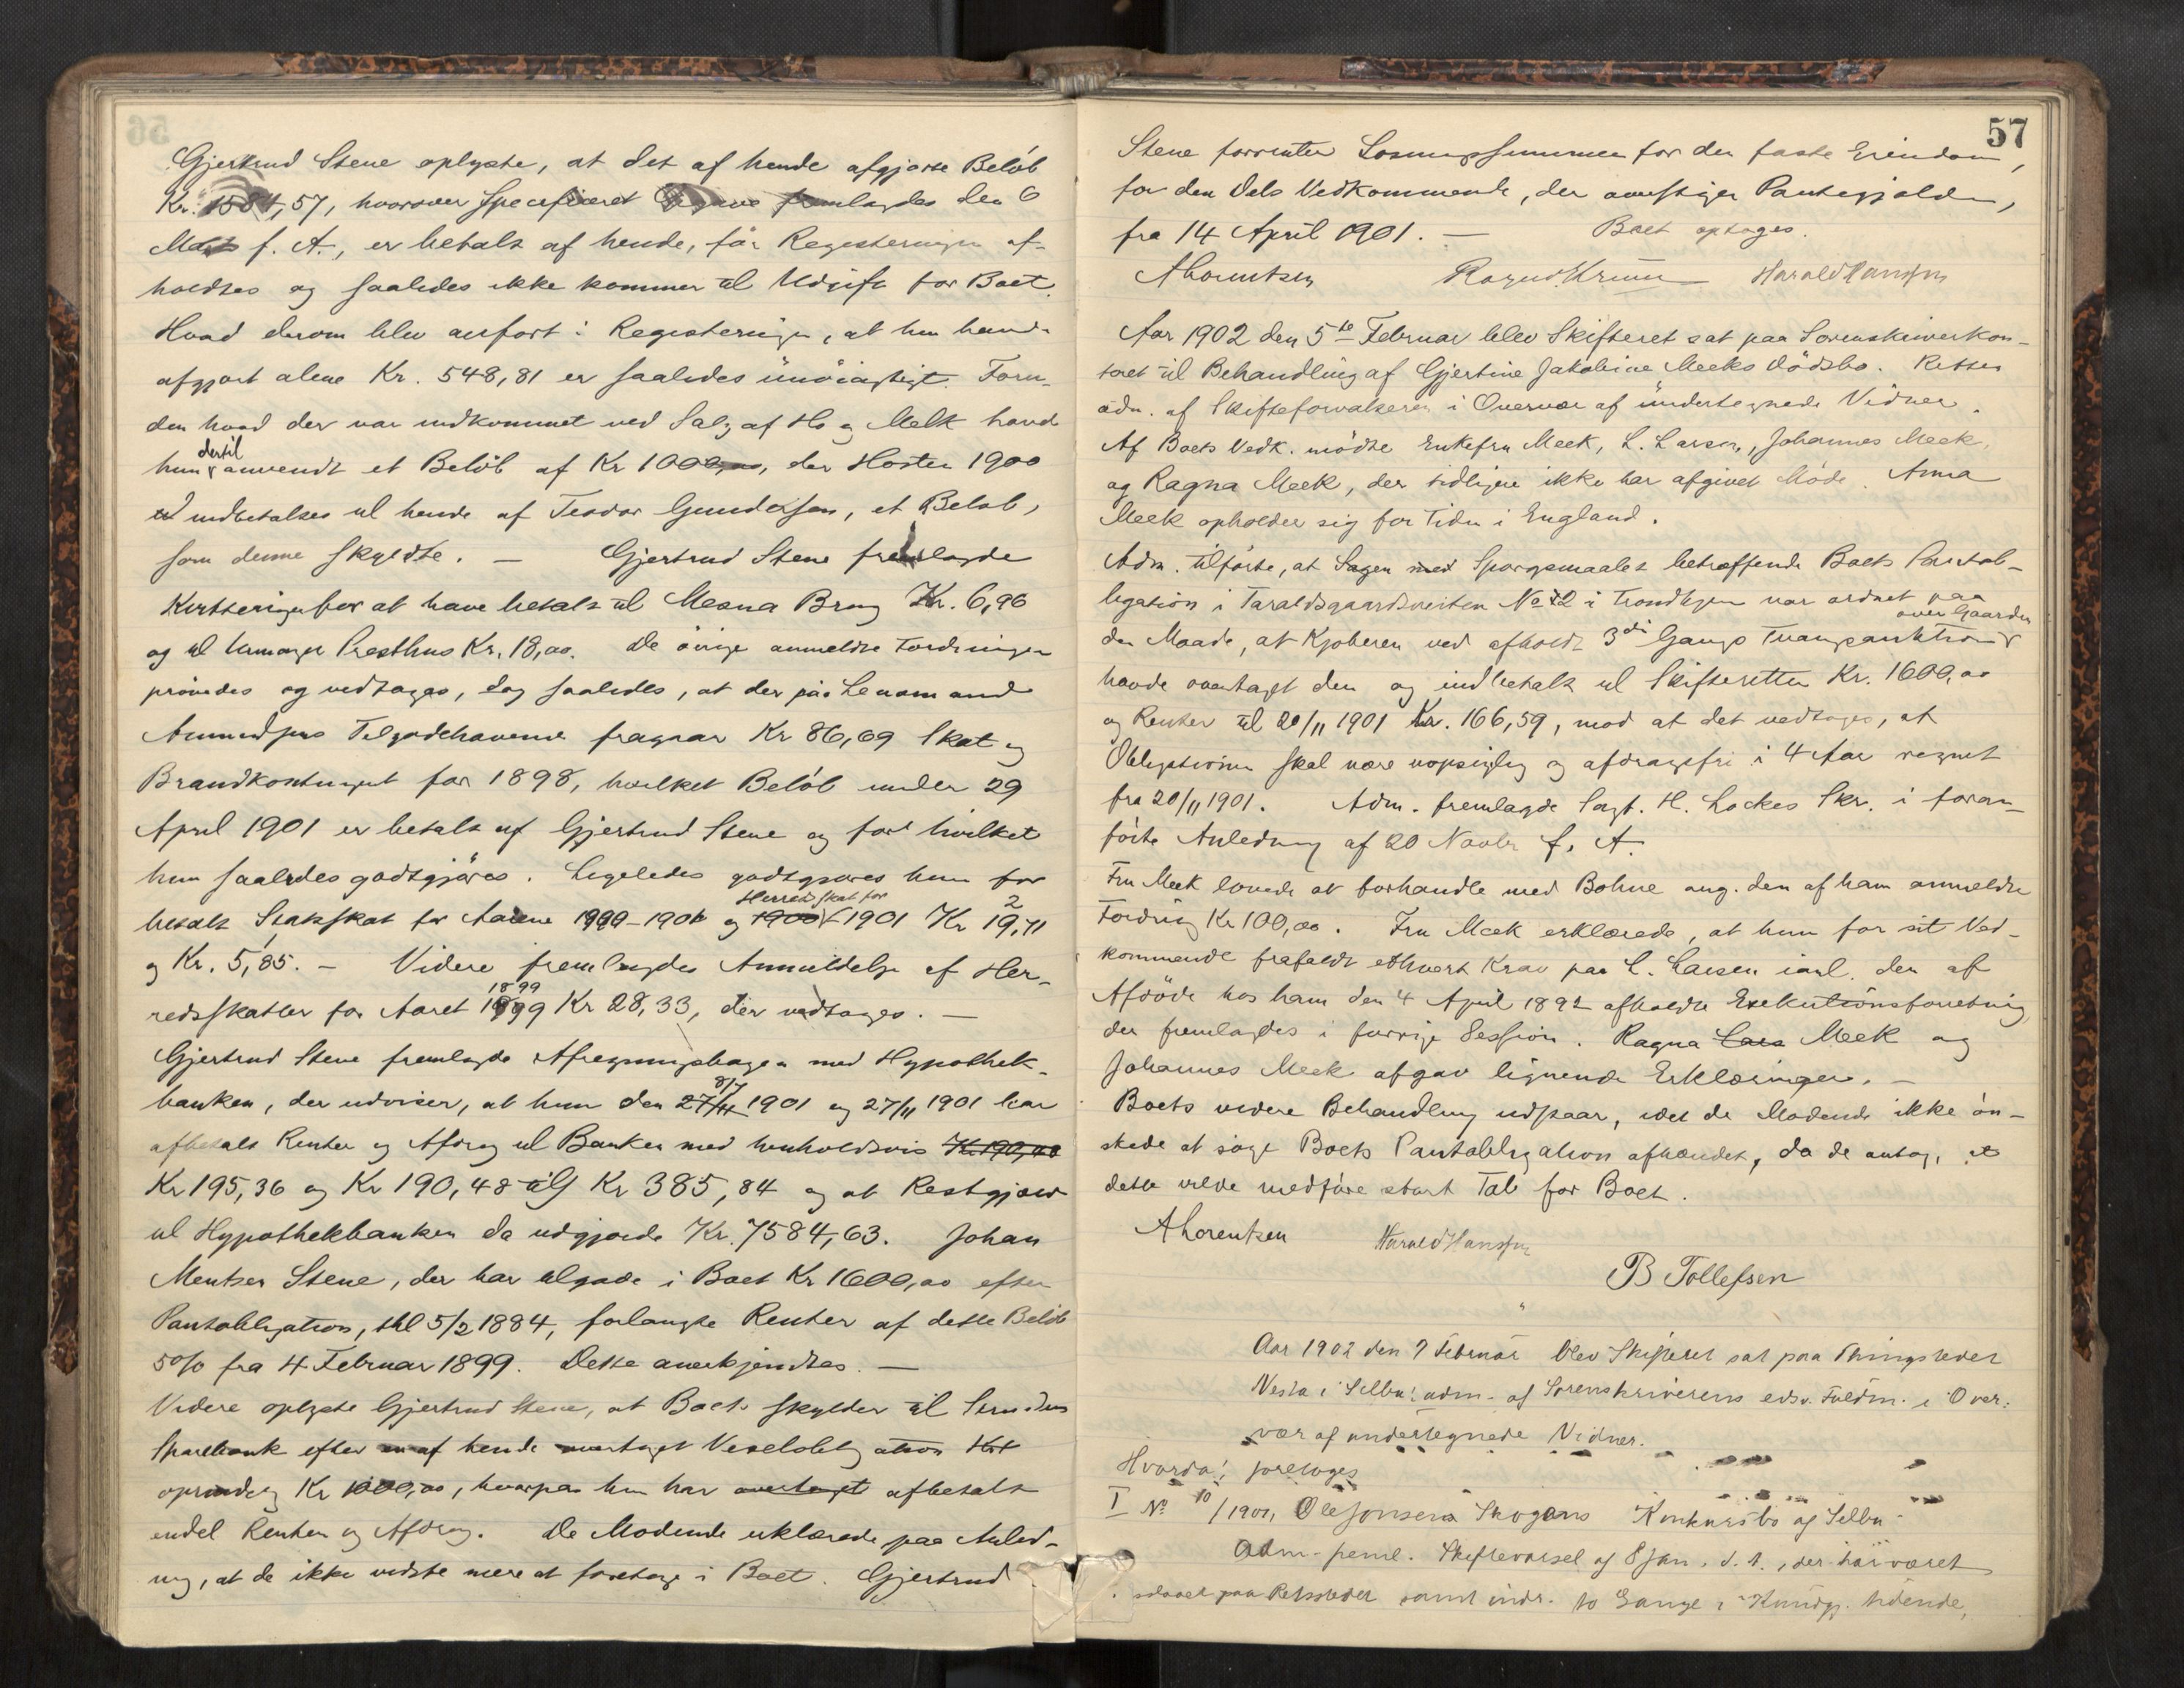 Gjertrud Stene oplyste, at det af hende afgjorte Beløb
Kr. 1584,57, hvorover specificeret Opgave fremlagdes den 6
Marts f. A., er betalt af hende, før Registeringen af-
holdtes og saaledes ikke kommer til Udgift for Boet.
Hvad derom blev anført i Registeringen, at hun havde
afgjort alene Kr. 548,81 er saaledes unøiagtigt. Foru-
den hvad der var indkommet ved Salg af Hø og Melk havde
hun dertil anvendt et Beløb af Kr 1000,00, der Høsten 1900
indbetaltes til hende af Teodor Gundersen, et Beløb,
som denne skyldte. — Gjertrud Stene fremlagde
Kvitteringer for at have betalt til Mesna Brug Kr. 6,96
og til Presthus Kr. 18,00. De øvrige anmeldte Fordringer
prøvedes og vedtoges, dog saaledes, at der paa Lensmand
Amundsens Tilgodehavende fragaar Kr 86,69 Skat og
Brandkontingent for 1898, hvilket Beløb under 29
April 1901 er betalt af Gjertrud Stene og for hvilket
hun saaledes godtgjøres. Ligeledes godtgjøres hun for
betalt Statsskat for Aarene 1900 og Herredsskat for 1901 Kr 19,71
og Kr. 5,85. — Videre fremlagdes Anmeldelse af Her-
redsskatter for Aaret 1899 Kr 28,33, der vedtoges. —
Gjertrud Stene fremlagde Afregningsbogen med Hypothek-
banken, der udviser, at hun den 8/7 1901 og 27/11 1901 har
afbetalt Renter og Afdrag til Banken med henholdsvis
Kr 195,36 og Kr 190,48 tils Kr 385,84 og at Restgjæld
til Hypothekbanken da udgjorde Kr. 7584,63. Johan
Mentsen Stene, der har tilgode i Boet Kr 1600,00 efter
Pantobligation, thl 5/2 1884, forlangte Renter af dette Beløb
5% fra 4 Februar 1899. Dette anerkjendtes. —
Videre oplyste Gjertrud Stene, at Boet skylder til
Sparebank efter af hende overtaget Vexelobligation
oprindelig Kr 1000,00, hvorpaa hun har afbetalt
endel Renter og Afdrag. De Mødende erklærede paa Anled-
ning, at de ikke vidste mere at foretage i Boet. Gjertrud
57
Stene forrenter Løsningssummen for den faste Eiendom,
for den Dels Vedkommende, der overstiger Pantegjælden,
fra 14 April 1901. — Boet optoges.
A Lorentzen Ragnv. Krum Harald Hanssen
Aar 1902 den 5te Februar blev Skifteret sat paa Sorenskriverkon-
toret til Behandling af Gjertine Jakobine Meeks Dødsbo. Retten
adm. af Skifteforvalteren i Overvær af undertegnede Vidner.
Af Boets Vedk. mødte Enkefru Meek, L. Larsen, Johannes Meek,
og Ragna Meek, der tidligere ikke har afgivet Møde. Anna
Meek opholder sig for Tiden i England.
Adm. tilførte, at Sagen med Spørgsmaalet betræffende Boets Pantob-
ligation i Taraldsgaardsveiten No 12 i Trondhjem var ordnet paa
den Maade, at Kjøberen ved afholdt 3die Gangs Tvangsauktion over Gaarden
havde overtaget den og indbetalt til Skifteretten Kr. 1600,00
og Renter til 20/11 1901 Kr. 166,59, mod at det vedtoges, at
Obligationen skal være uopsigelig og afdragsfri i 4 Aar regnet
fra 20/11 1901. Adm. fremlagde Sagf. H. Lockes Skr. i foran-
førte Anledning af 20 Novbr f. A.
Fru Meek lovede at forhandle med Bohne ang. den af ham anmeldte
Fordring Kr 100,00. Fru Meek erklærede, at hun for sit Ved-
kommende frafaldt ethvert Krav paa L. Larsen ianl. den af
Afdøde hos ham den 4 April 1892 afholdte Exekutionsforretning,
der fremlagdes i forrige Session. Ragna Lars Meek og
Johannes Meek afgav lignende Erklæringer. —
Boets videre Behandling udstaar, idet de Mødende ikke øn-
skede at søge Boets Pantobligation afhændet, da de antog, at
dette vilde medføre stort Tab for Boet.
A Lorentzen Harald Hanssen
B Tollefsen
Aar 1902 den 7 Februar blev Skifteret sat paa Thingstedet
Nesta i Selbu: adm. af Sorenskriverens edsv. Fuldm. i Over-
vær af undertegnede Vidner.
Hvorda: foretoges
I No 10/1901, Ole Jonsen Skogans Konkursbo af Selbu.
Adm. freml. Skiftevarsel af 8 Jan. d. A., der har været
opslaaet paa Retsstedet samt indr. to Gange i Kundgj. tidende,